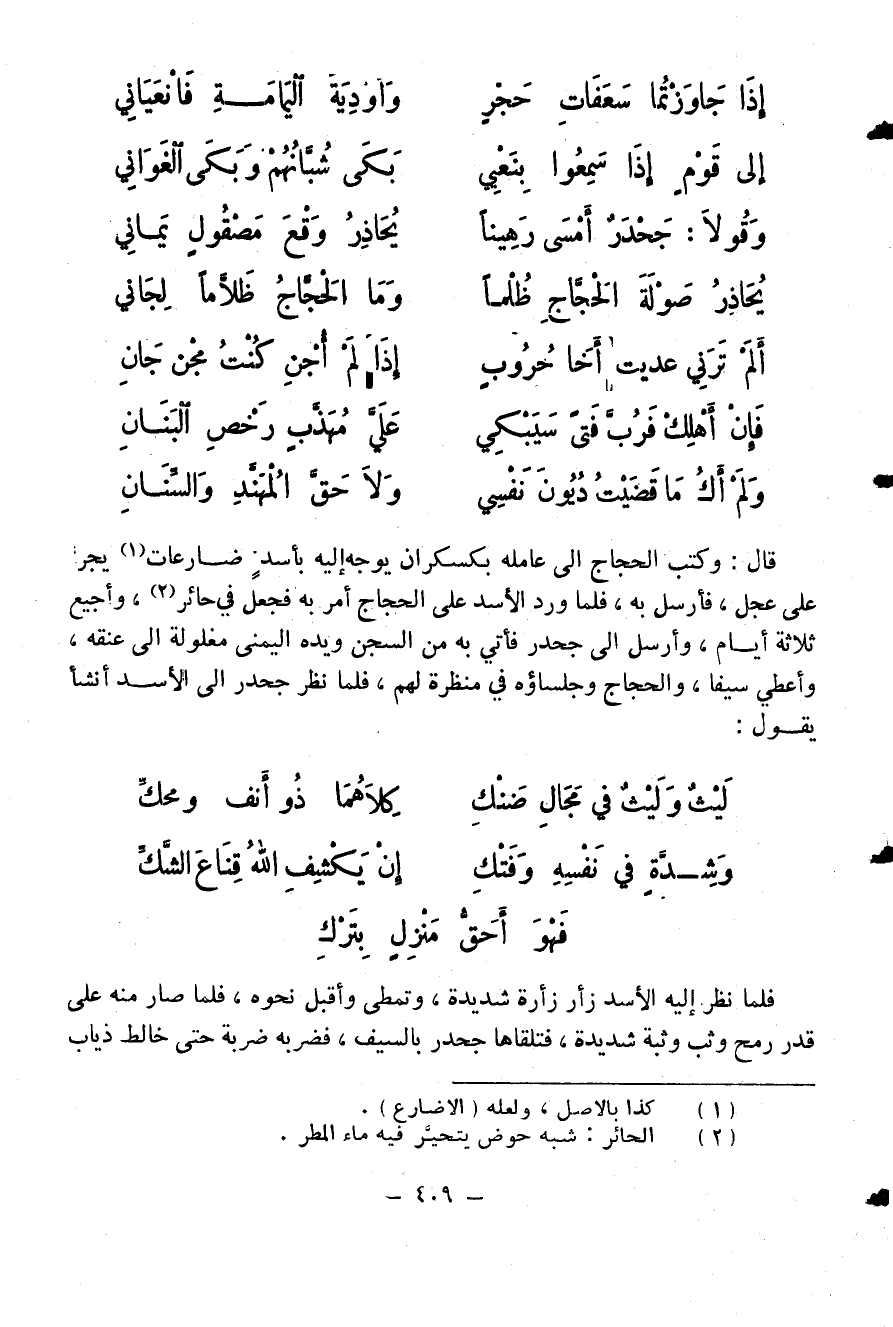 إِذَا جَاوَزْتُمَا سَعَفَاتِ حَجْرٍ وَأَوْدِيَةَ ٱلْيَمَامَــةِ فَانْعَيَانِي
إلى قَوْمٍ إِذَا سَمِعُوا بِنَعْيِي بَكَى شُبَّانُهُمْ وَبَكَى ٱلْغَوَانِي
وَقُولاَ : جَحْدَرٌ أَمْسَى رَهِيناً يُحَاذِرُ وَقْعَ مَصْقُولٍ يَمـانِي
يُحَاذِرُ صَوْلَةَ الْحَجَّاجِ ظُلْمـاً وَمَا الْحَجَّاجُ ظَلاَّماً لِجَانِي
أَلَمْ تَرَنِي عديت أَخَا حُرُوبٍ إِذَا لَمْ أَجْنِ كُنْتُ مِجَن جَانِ
فَإِنْ أَهْلِكْ فَرُبَّ فَتىً سَيَبْكِي عَلَيَّ مُهَذَّبٍ رَخْصِ ٱلبَنَـانِ
وَلَمْ أَكُ مَا قَضَيْتُ دُيُونَ نَفْسِي وَلاَ حَقَّ الْمُهَنَّدِ وَالسِّنَـانِ
قال : وكتب الحجاج الى عامله بكسكر ان يوجه إليه بأسدٍ ضــارعات(١) يجر
على عجل ، فأرسل به ، فلما ورد الأسد على الحجاج أمر به فجعل في حائر(٢) ، وأجيع
ثلاثة أيــام ، وأرسل الى جحدر فأتي به من السجن ويده اليمنى مغلولة الى عنقه ،
وأعطي سيفا ، والحجاج وجلساؤه في منظرة لهم ، فلما نظر جحدر الى الأســد أنشأ
يقــول :
لَيْثٌ وَلَيْثٌ في مَجَالِ ضَنْكِ كِلاَهُمَا ذُو أَنف ومحكِّ
وَشِــدَّةٍ في نَفْسِهِ وَفَتْكِ إِنْ يَكْشِفِ اللهُ قِنَاعَ الشَّكِّ
فَهْوَ أَحَقُّ مَنْزِلٍ بِتَرْكِ
فلما نظر إليه الأسد زأر زأرة شديدة ، وتمطى وأقبل نحوه ، فلما صار منه على
قدر رمح وثب وثبة شديدة ، فتلقاها جحدر بالسيف ، فضربه ضربة حتى خالط ذباب
(١) كذا بالاصل ، ولعله ( الاضارع ) .
(٢) الحائر : شبه حوض يتحيَّر فيه ماء المطر .
– ٤٠٩ –